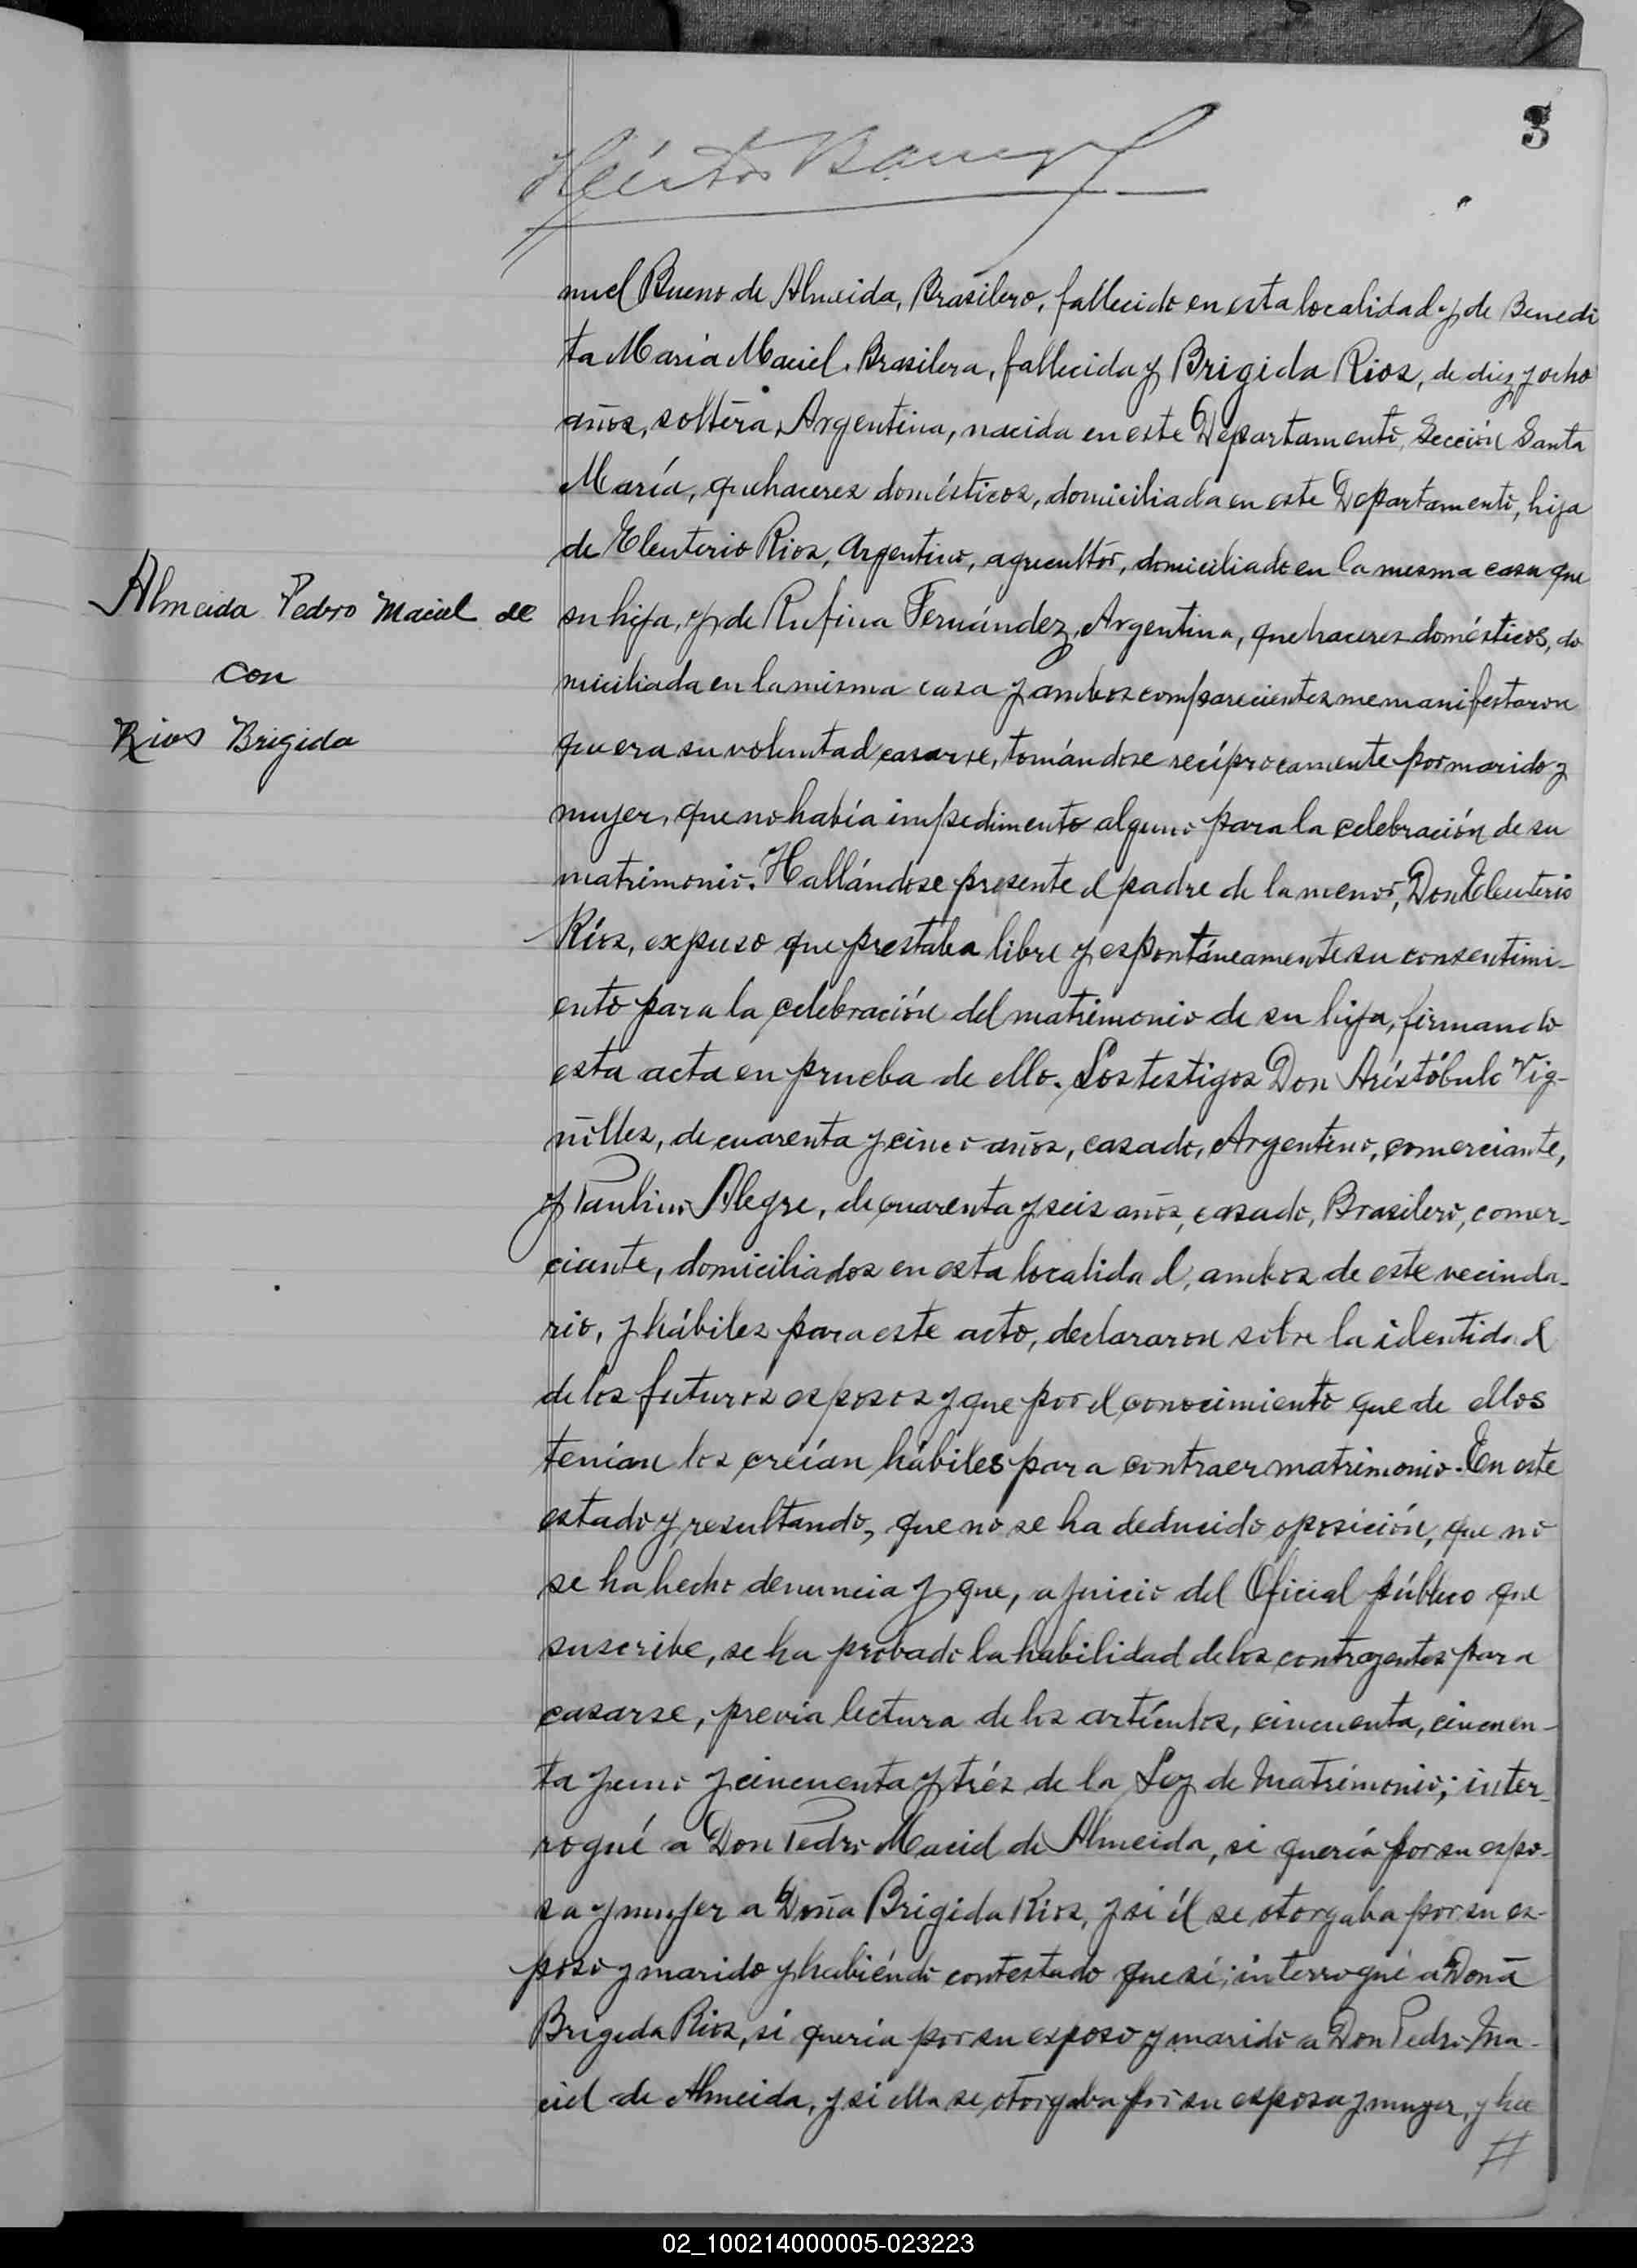 3
Héctor
nuel Bueno de Almeida, Brasilero, fallecido en esta localidad y de Benedi
ta María Maciel, Brasilera, fallecida y Brigida Rios, de diez y ocho
años, soltera, Argentina, nacida en este Departamento, Sección Santa
María, quehaceres domésticos, domiciliada en este Departamento, hija
de Eleuterio Rios, Argentino, agricultor, domiciliado en la misma casa que
su hija, y de Rufina Fernández, Argentina, quehaceres domésticos, do
miciliada en la misma casa y ambos comparecientes me manifestaron
que era su voluntad casarse, tomándose recíprocamente por marido y
mujer, que no había impedimento alguno para la celebración de su
matrimonio. Hallándose presente el padre de la menor, Don Eleuterio
Ríos, expuso que prestaba libre y espontáneamente su consentimi-
ento para la celebración del matrimonio de su hija, firmando
esta acta en prueba de ello. Los testigos Don Aristóbulo Vig-
nolles, de cuarenta y cinco años, casado, Argentino, comerciante,
y Paulino Alegre, de cuarenta y seis años, casado, Brasilero, comer-
ciante, domiciliados en esta localidad, ambos de este vecinda-
rio, y hábiles para este acto, declararon sobre la identidad
de los futuros esposos y que por el conocimiento que de ellos
tenían los creían hábiles para contraer matrimonio. En este
estado y resultando, que no se ha deducido oposición, que no
se ha hecho denuncia y que, a juicio del Oficial público que
suscribe, se ha probado la habilidad de los contrayentes para
casarse, previa lectura de los artículos, cincuenta, cincuen-
ta y uno y cincuenta y trés de la Ley de Matrimonio; inter-
rogué a Don Pedro Maciel de Almeida, si quería por su espo-
sa y mujer a Doña Brigida Rios, y si él se otorgaba por su es-
poso y marido y habiéndo contestado que sí; interrogué a Doña
Brigida Rios, si quería por su esposo y marido a Don Pedro Ma-
ciel de Almeida, y si ella se otorgaba por su esposa y mujer, y ha
//
Almeida Pedro Maciel de
con
Rios Brigida
02_100214000005-023223